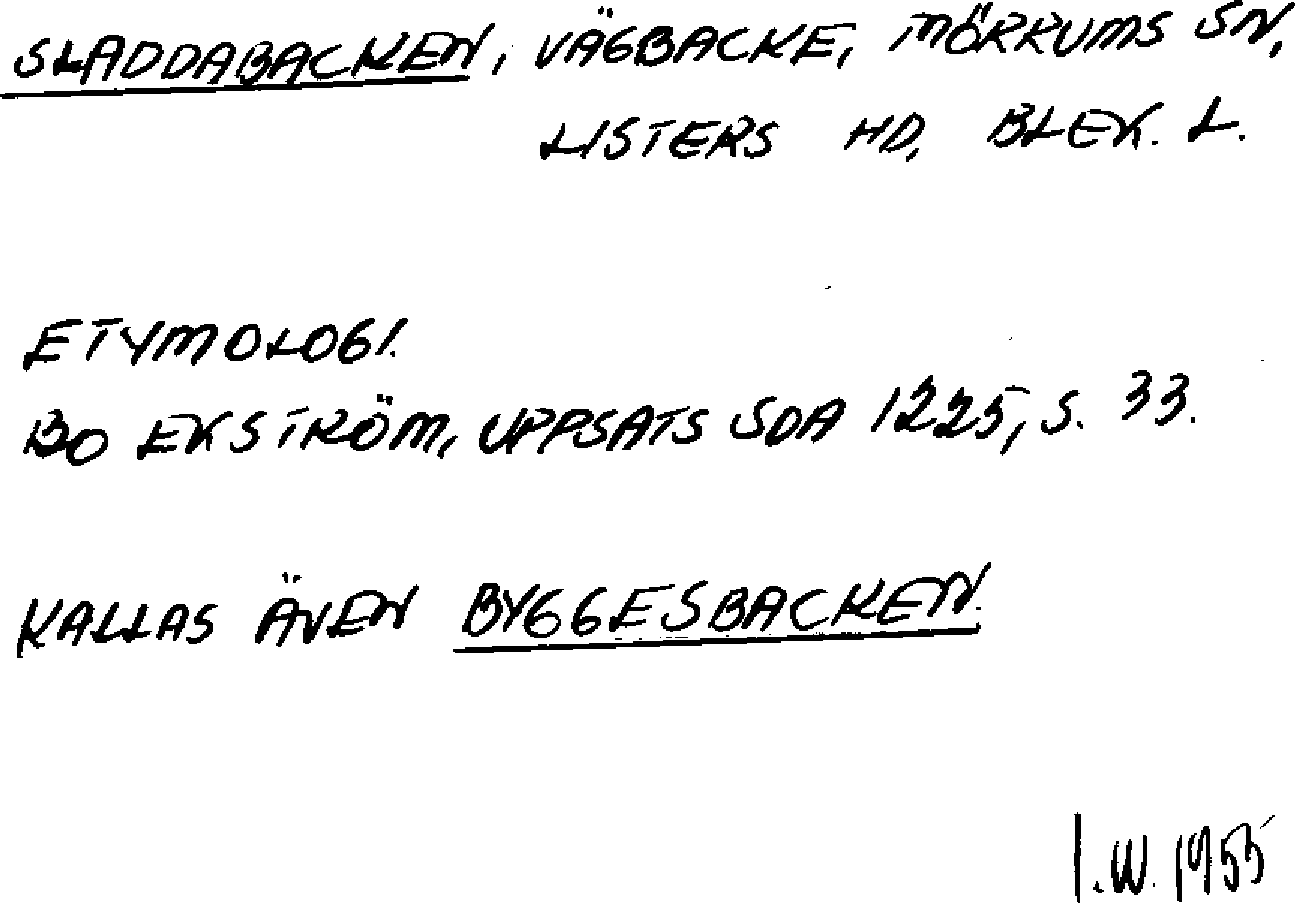 SLADDABACKEN, VÄGBACKE, MÖRRUMS SN,
LISTERS HD, BLEK. L.
ETYMOLOGI.
BO EKSTRÖM, UPPSATS SDA 1225, S. 33.
KALLAS ÄVEN BYGGESBACKEN.
I.W. 1955